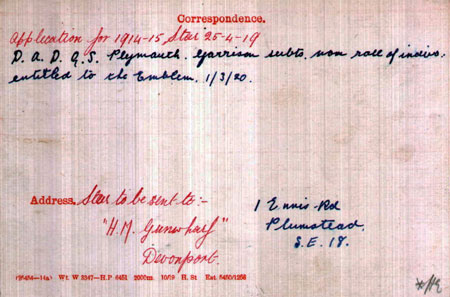 Correspondence.
Application for 1914-15 Star 25-4-19
D. A. D. Q. S. Plymouth Garrison subts. nom roll of indivs.
entitled to the Emblem. 1/3/20.
Address. Star to be sent to:-
"H.M. Gunwharf"
Devonport.
1 Ennis Rd
Plumstead.
S.E. 18.
Wt W 3347—H.P 6451 2000m. 10/19 H. St